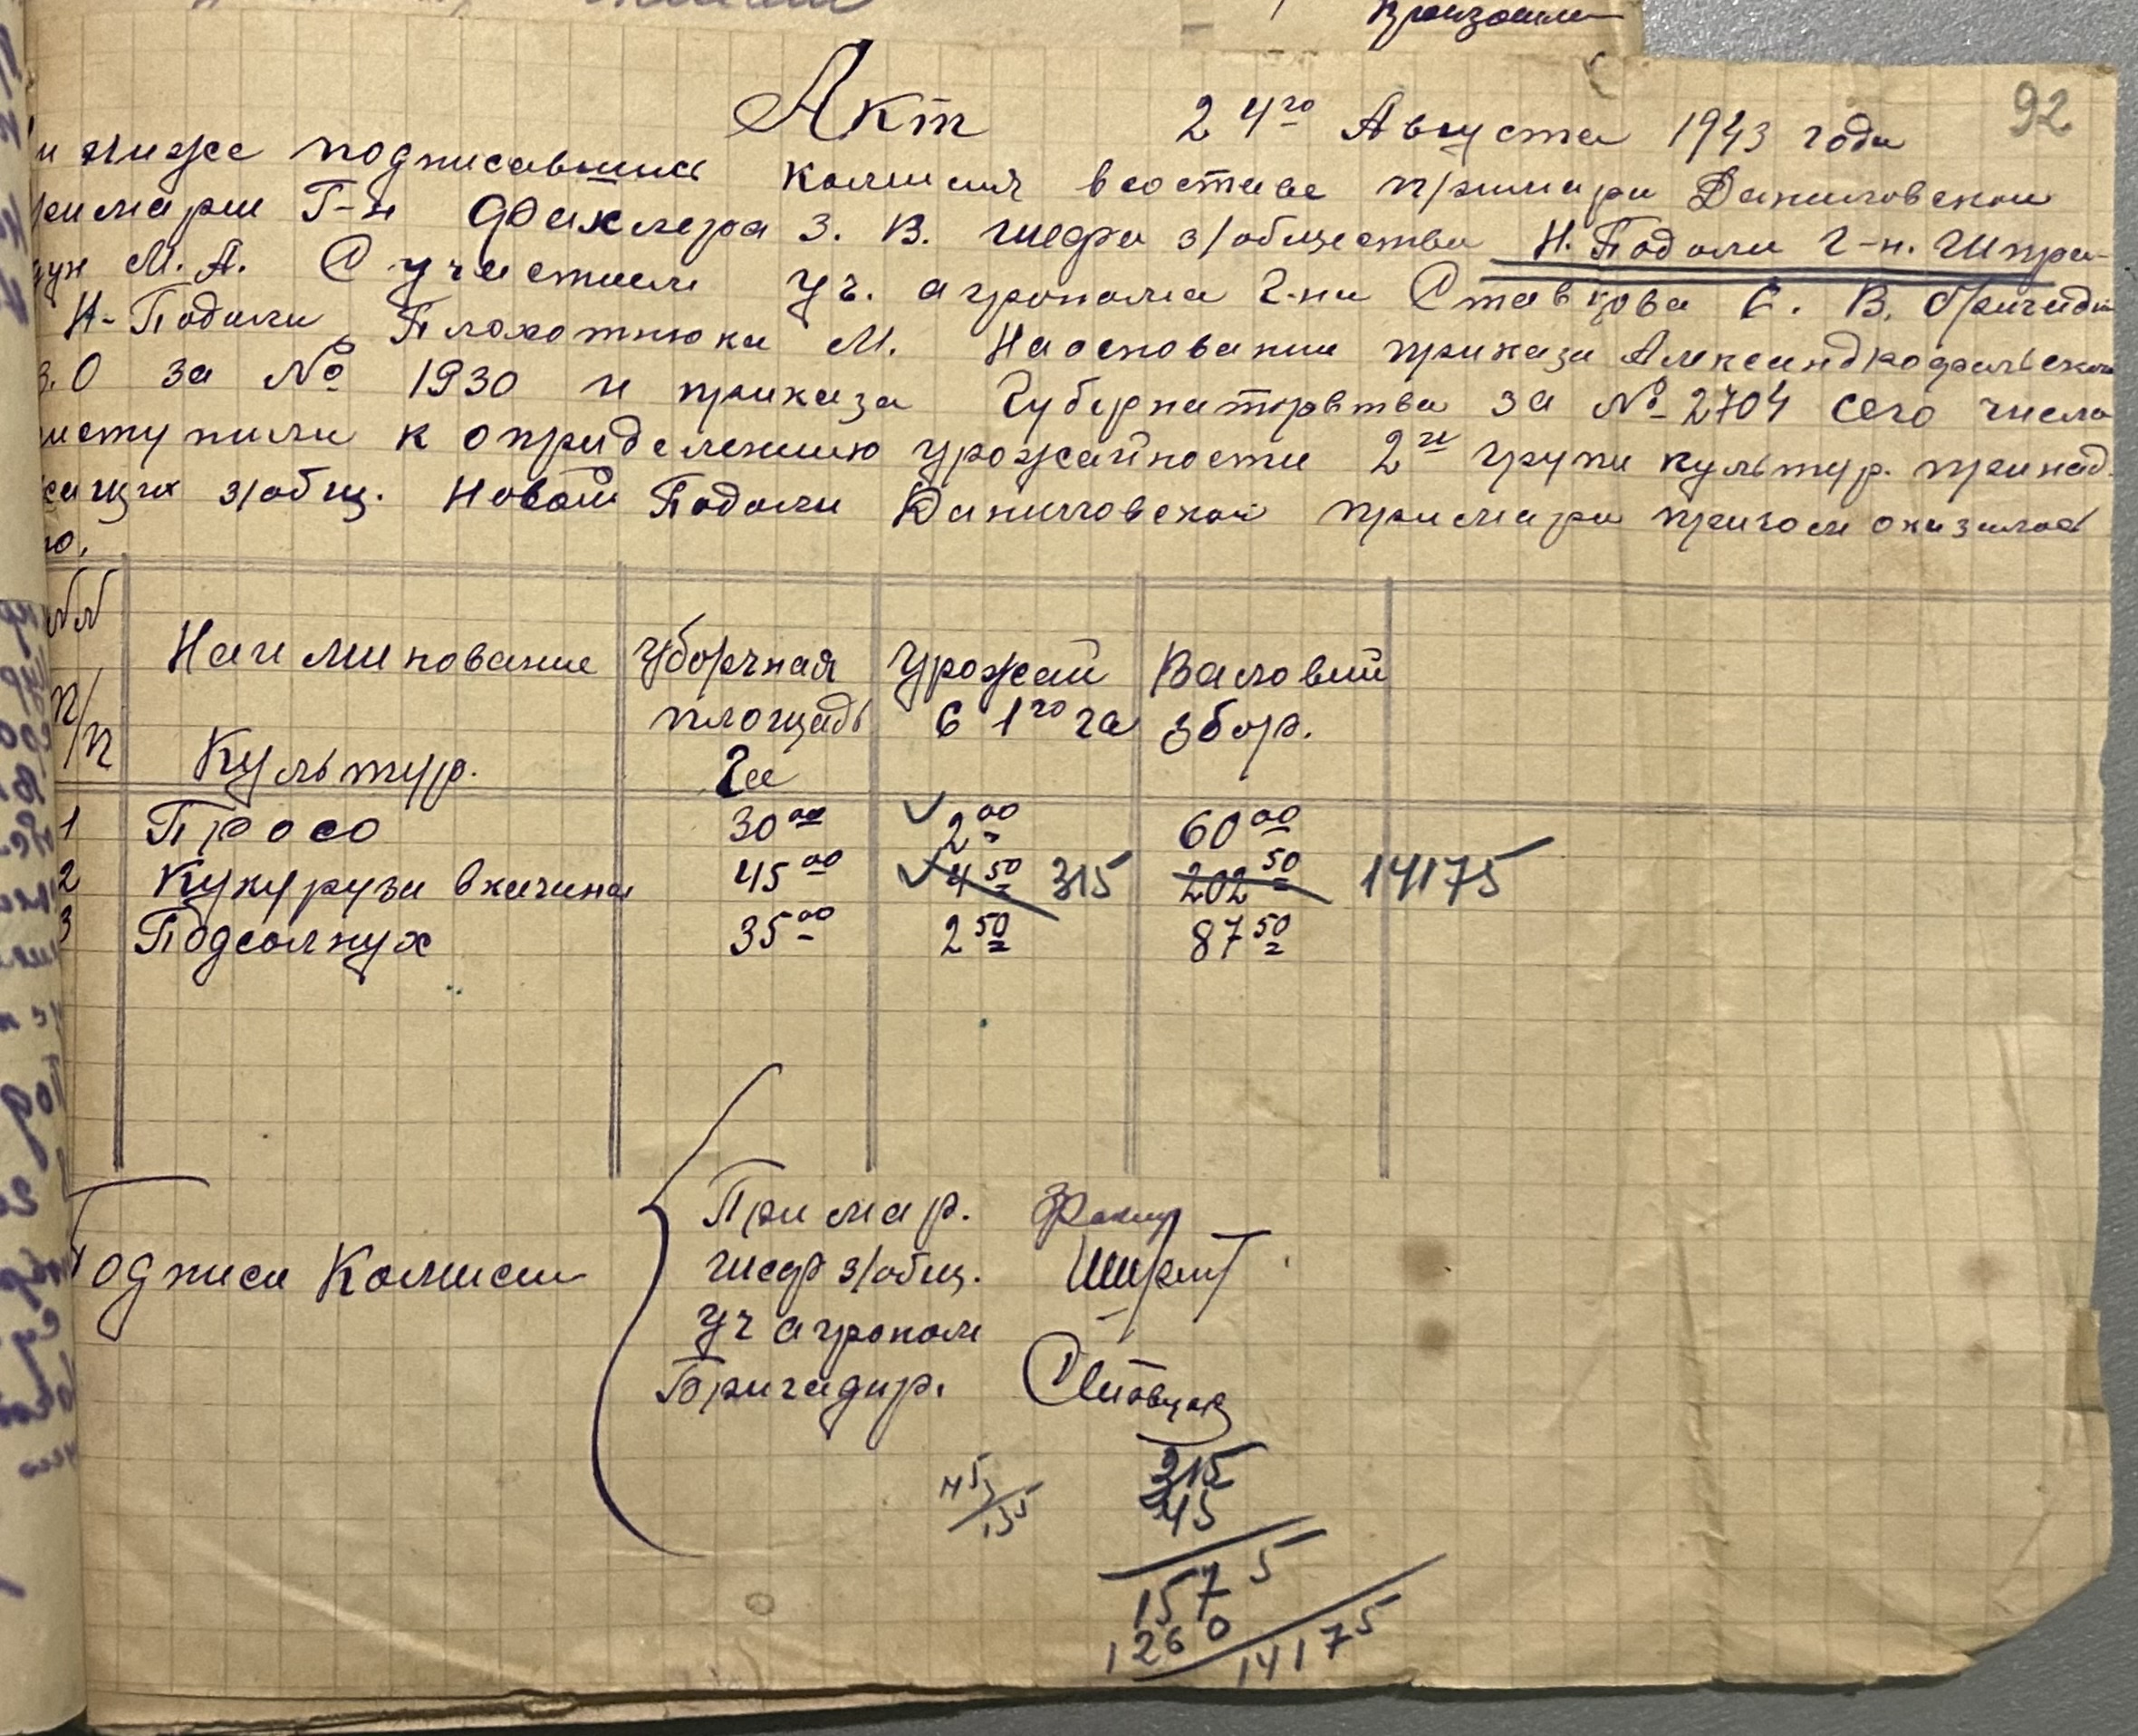 произошли
92
Акт 24го Августа 1943 года
и ниже подписавшись Комисия в составе примари Даниловской
имарии Г-н Факлера З. В. Шефа з/общества Н. Подоли г-н. Шпри-
дун М. А. С участием уч. агронома г-на Ставцова С. В. бригадир
Н-Подоли Плахотнюка М. На основании приказа Александрофельской
З.О за № 1930 и приказа Губернаторвтва за № 2704 сего числа
иступили к определению урожайности 2й групи культур. принад-
жащих з/общ. Новой Подоли Даниловской примари причом оказалось
но.
№№ п/п Наименование Культур. Уборчная площадь Га Урожай С 1го га Валовий збор.
1 Просо 30 00 2 00 60 00
2 Кукурузи в качанах 45 00 4 50 315 202 50 14175
3 Подсолнух 35 00 2 50 87 50
Подписи Комисии
Примар.
Шеф з/общ.
Уч агроном
Бригадир. Ставцов
45 315
135 45
1575
1260
14175